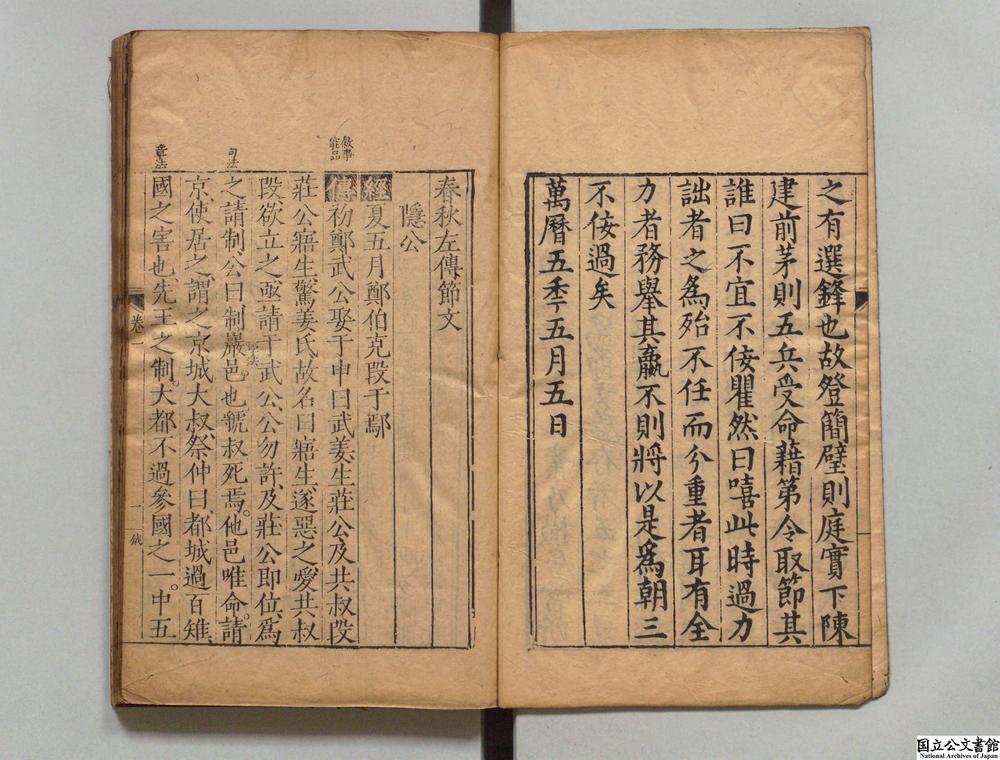 之有選鋒也故登簡璧則庭實下陳
建前茅則五兵受命藉第令取節其
誰曰不宜不佞瞿然曰嘻此時過力
詘者之為殆不任而分重者耳有全
力者務舉其羸不則將以是為朝三
不佞過矣
萬曆五秊五月五日
春秋左傳節文
隱公
經夏五月鄭伯克段于鄢
敘事
能品
傳初鄭武公娶于申曰武姜、生莊公及共叔段
莊公寤生、驚姜氏故名曰寤生、遂惡之、愛共叔
段、欲立之、亟請于武公、公勿許、及莊公即位、為
句法
之請制、公曰制巖邑也、虢叔死焉。他邑唯命。請
京、使居之、謂之京城大叔、祭仲曰、都城過百雉、
章法
國之害也先王之制。大都不過參國之一。中五
卷一
一
国立公文書館
National Archives of Japan